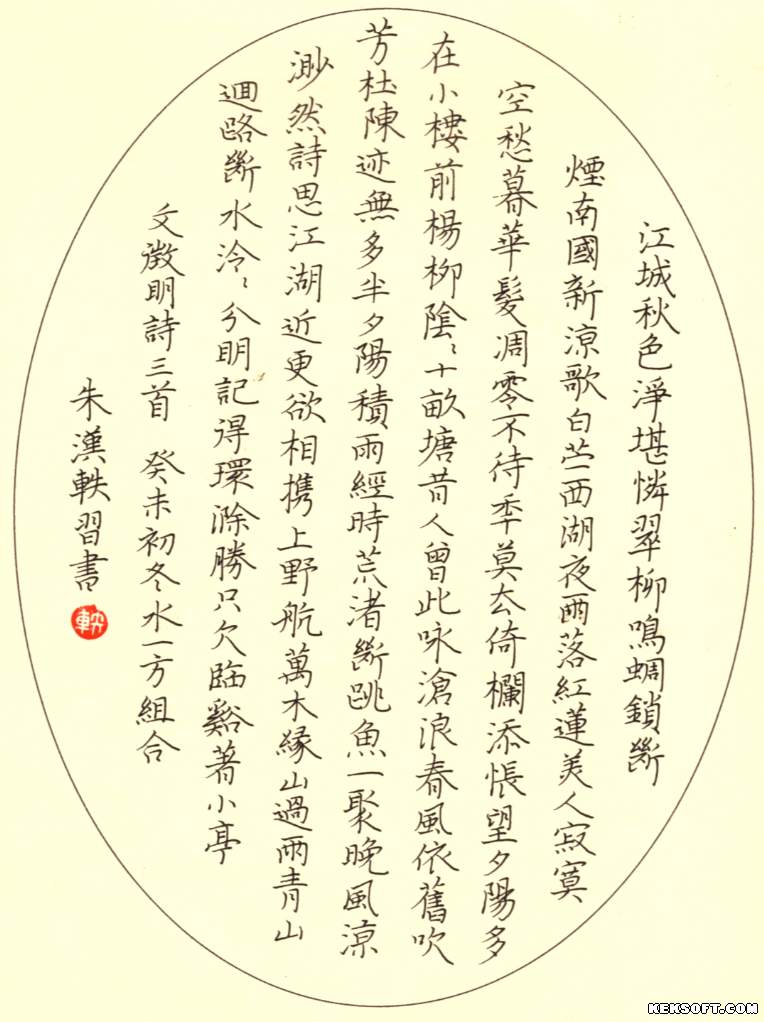 江城秋色淨堪憐翠柳鳴蜩鎖斷
煙南國新涼歌白苎西湖夜雨落紅蓮美人寂寞
空愁暮華髮凋零不待季莫厺倚欄添悵望夕陽多
在小樓前楊柳陰〻十畝塘昔人曾此咏滄浪春風依舊吹
芳杜陳迹無多半夕陽積雨經時荒渚斷跳魚一聚晚風涼
渺然詩思江湖近更欲相携上野航萬木緣山過雨青山
迴路斷水泠〻分明記得環滁勝只欠臨谿著小亭
文徵明詩三首 癸未初冬水一方組合
朱漢軼習書
軼
KEKSOFT.COM